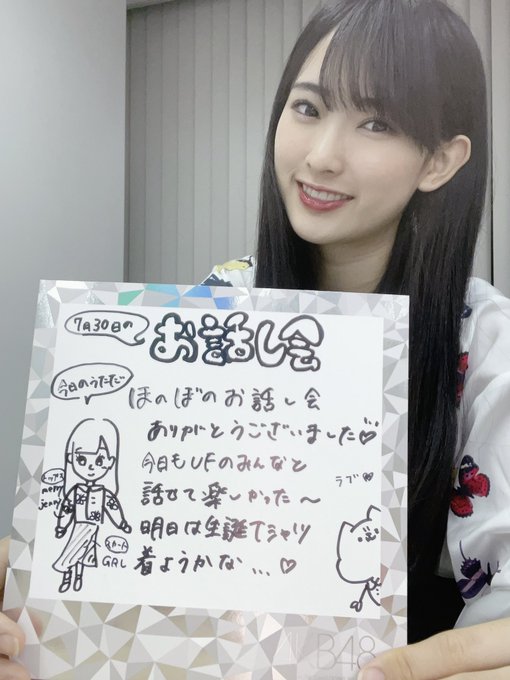 7月30日の
お話し会
今日のうただ
ほのぼのお話し会
ありがとうございました♡
今日もUFのみんなと
話せて楽しかった〜
明日は生誕Tシャツ
着ようかな...♡
ラブ♡
トップス
merry
jenny
スカート
GRL
B48